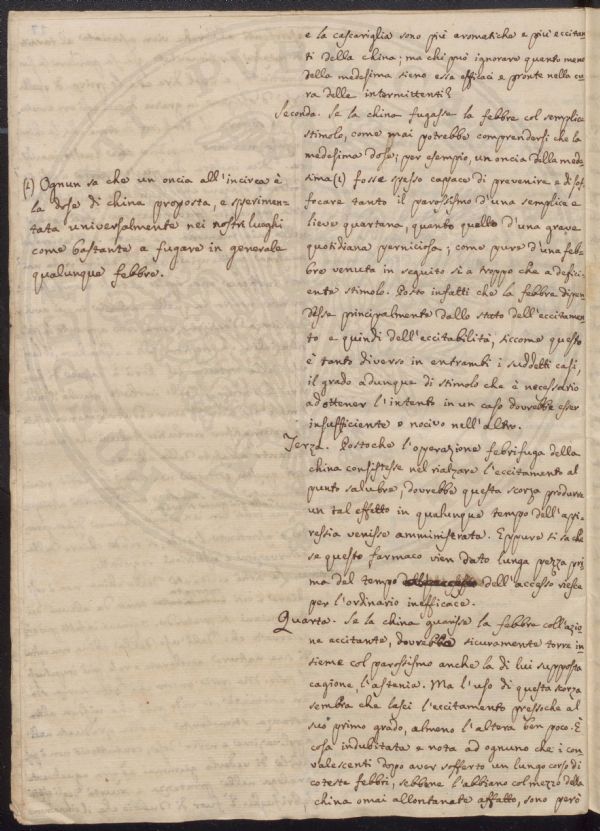 e la cascariglia sono più aromatiche e più eccitan-
ti della china; ma chi può ignorare quanto meno
della medesima sieno esse efficaci e pronte nella cu-
ra delle intermittenti?
Seconda. Se la china fugasse la febbre col semplice
stimolo, come mai potrebbe comprendersi che la
medesima dose; per esempio, un oncia della mede-
sima (1) fosse spesso capace di prevenire e di sof-
focare tanto il parossismo d'una semplice e
lieve quartana, quanto quello d'una grave
quotidiana perniciosa; come pure d'una feb-
bre venuta in seguito sia troppo che a defici-
ente stimolo. Posto infatti che la febbre dipen-
desse principalmente dallo stato dell'eccitamen-
to e quindi dell'eccitabilità, siccome questo
è tanto diverso in entrambi i suddetti casi,
il grado adunque di stimolo che è necessario
ad ottener l'intento in un caso dovrebbe esser
insufficiente e nocivo nell'altro.
Terza. Postoche l'operazione febrifuga della
china consistesse nel rialzare l'eccitamento al
punto salubre, dovrebbe questa scorza produrre
un tal effetto in qualunque tempo dell'api-
ressia venisse amministrata. Eppure si sa che
se questo farmaco vien dato lunga pezza pri-
ma del tempo dell'accesso riesce
per l'ordinario inefficace.
Quarta. Se la china guarisse la febbre coll'azio-
ne eccitante, dovrebbe sicuramente torre in-
sieme col parossismo anche la di lui supposta
cagione, l'astenia. Ma l'uso di questa scorza
sembra che lasci l'eccitamento pressoche al
suo primo grado, almeno l'altera ben poco. È
cosa indubitata e nota ad ognuno che i con-
valescenti dopo aver sofferto un lungo corso di
coteste febbri, sebbene l'abbiano col mezzo della
china omai allontanate affatto, sono però
(1) Ognun sa che un oncia all'incirca è
la dose di china proposta, e sperimen-
tata universalmente nei nostri luoghi
come bastante a fugare in generale
qualunque febbre.